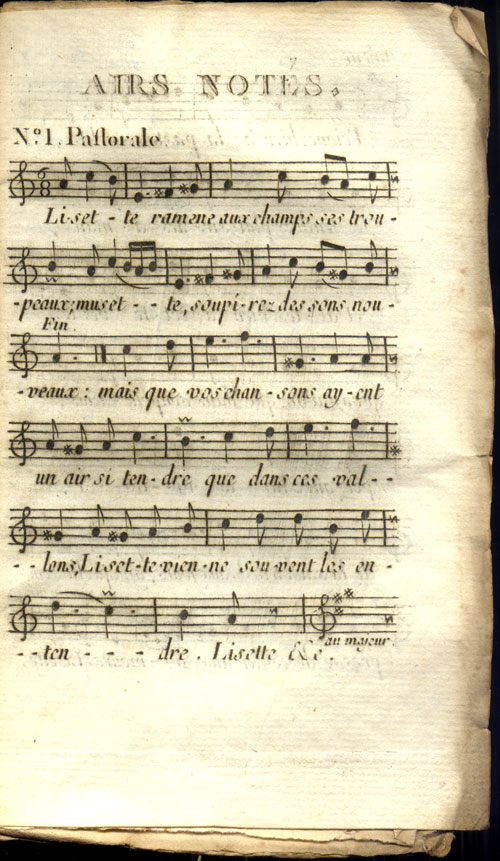 AIRS NOTÉS.
N.º 1. Paſtorale
Li-set - te ramene aux champs ses trou-
-peaux; muset - - te, soupi-rez des sons nou-
Fin.
-veaux: mais que vos chan-sons ay-ent
un air si ten-dre que dans ces val - -
- - lons, Li-set-te vien-ne sou-vent les en-
au majeur.
- - ten - - - dre. Lisette &c.